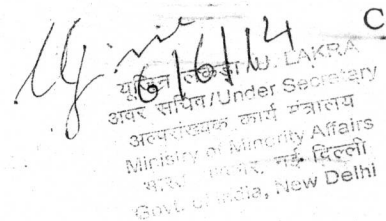 C
6/6/14
यूजिन लकड़ा/U. LAKRA
अवर सचिव/Under Secretary
अल्पसंख्यक कार्य मंत्रालय
Ministry of Minority Affairs
भारत सरकार, नई दिल्ली
Govt. of India, New Delhi